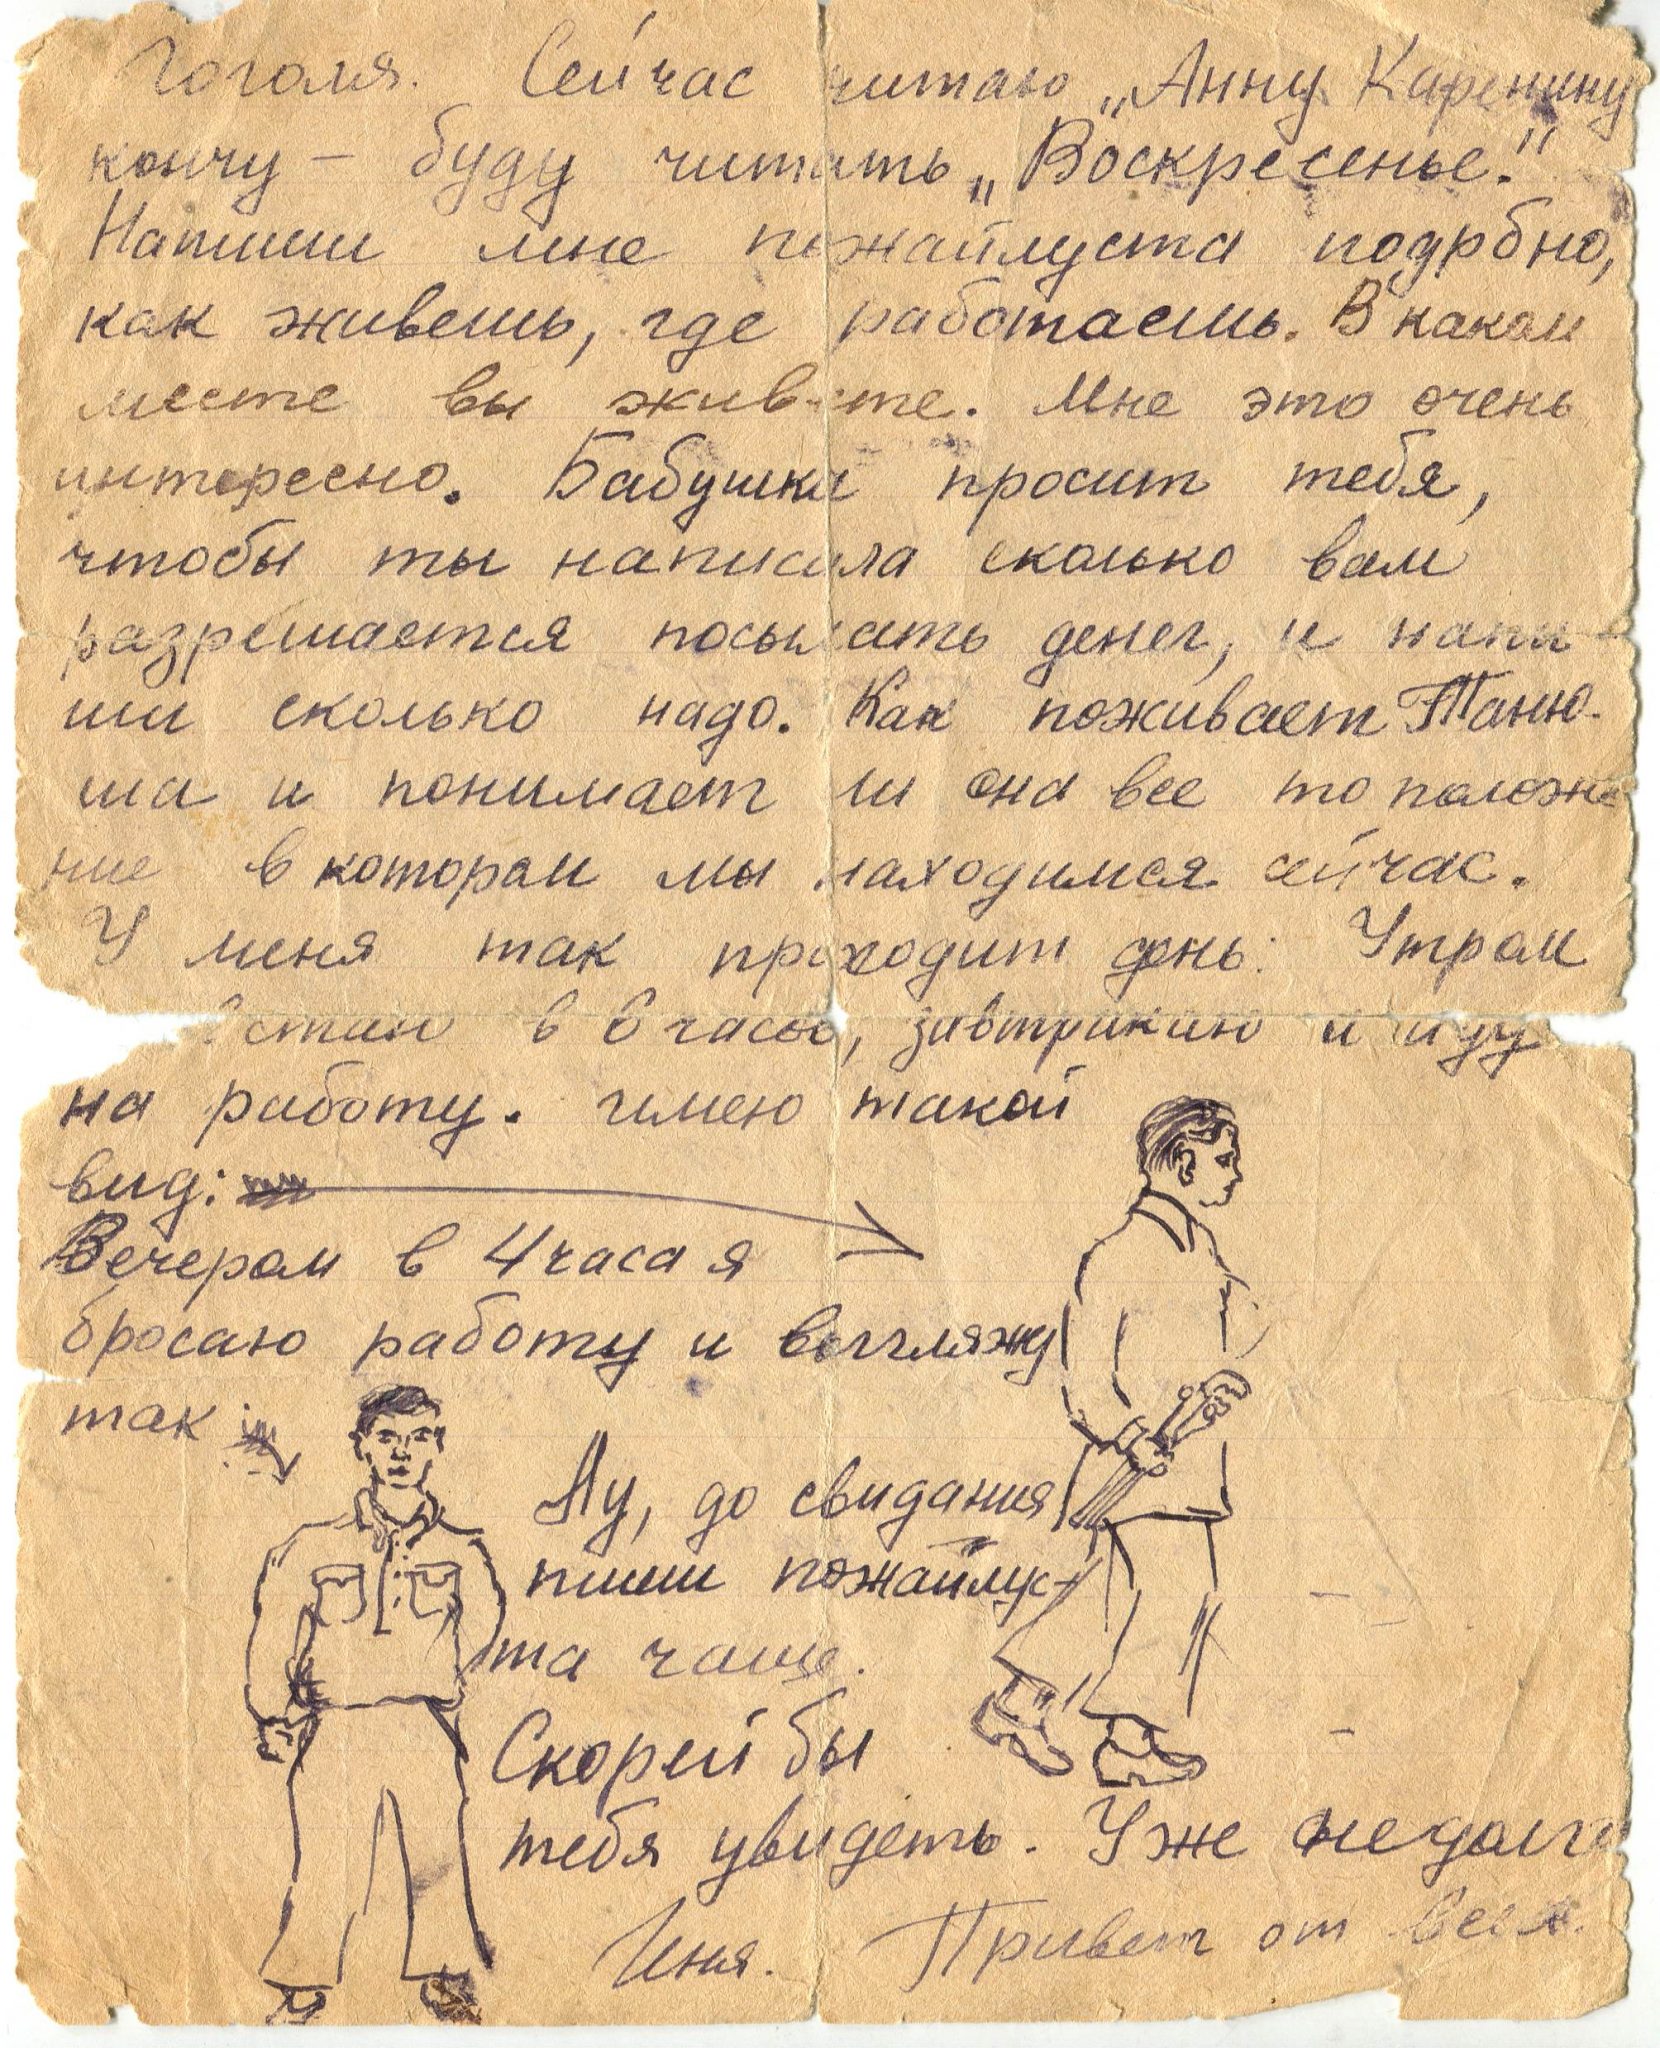 Гоголя. Сейчас читаю „Анну Каренину
кончу – буду читать „Воскресенье."
Напиши мне пожайлуста подрбно,
как живешь, где работаешь. В каком
месте вы живете. Мне это очень
интересно. Бабушка просит тебя,
чтобы ты написала сколько вам
разрешается посылать денег, и напи-
ши сколько надо. Как поживает Таню-
ша и понимает ли она все то положе
ние в котором мы находимся сейчас.
У меня так проходит день: Утром
встаю в 6 часов, завтракаю и иду
на работу. имею такой
вид:
Вечером в 4 часа я
бросаю работу и выгляжу
так:
Ну, до свидания
пиши пожайлус-
та чаще.
Скорей бы
тебя увидеть. Уже недолго
Привет от всех.